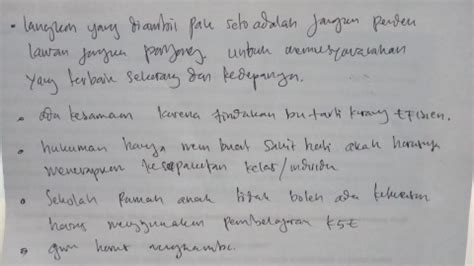 • langkah yang diambil pak seto adalah jangka pendek
lawan jangka panjang, untuk memusyawarahkan
yang terbaik sekarang dan kedepannya.
• ada kesamaan karena tindakan bu tarti kurang efisien.
• hukuman hanya membuat sakit hati, akan harusnya
menerapkan kesepakatan kelas/individu
• Sekolah Ramah anak tidak boleh ada kekerasan
harus menggunakan pembelajaran KSE
• guru harus